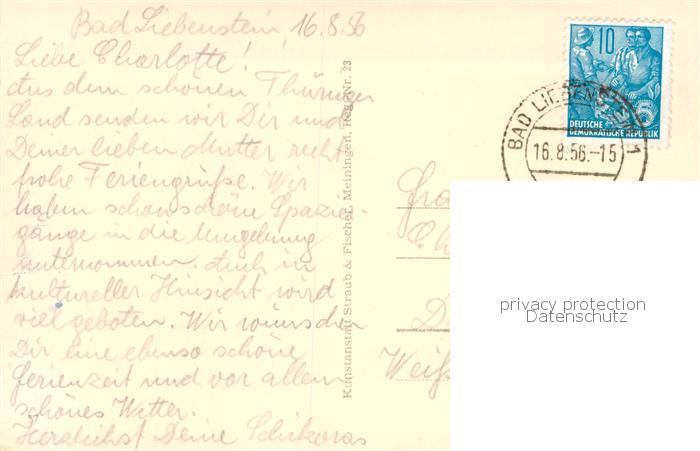 Bad Liebenstein, 16.8.56
Liebe Charlotte!
Aus dem schönen Thüringer
Land senden wir Dir und
Deiner lieben Mutter recht
frohe Feriengrüße. Wir
haben schon schöne Spazier-
gänge in die Umgebung
unternommen. Auch in
kultureller Hinsicht wird
viel geboten. Wir wünschen
Dir eine ebenso schöne
Ferienzeit und vor allem
schönes Wetter.
Herzlichst Deine
Kunstanstalt Straub & Fischer, Meiningen, Reg.-Nr. 23
10
5
DEUTSCHE
DEMOKRATISCHE REPUBLIK
BAD LIEBENSTEIN 1
16.8.56.-15
Weiß
privacy protection
Datenschutz